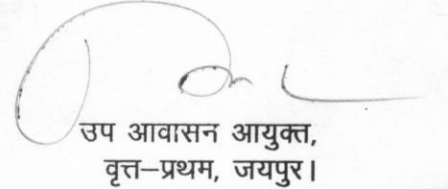 उप आवासन आयुक्त,
वृत्त–प्रथम, जयपुर।